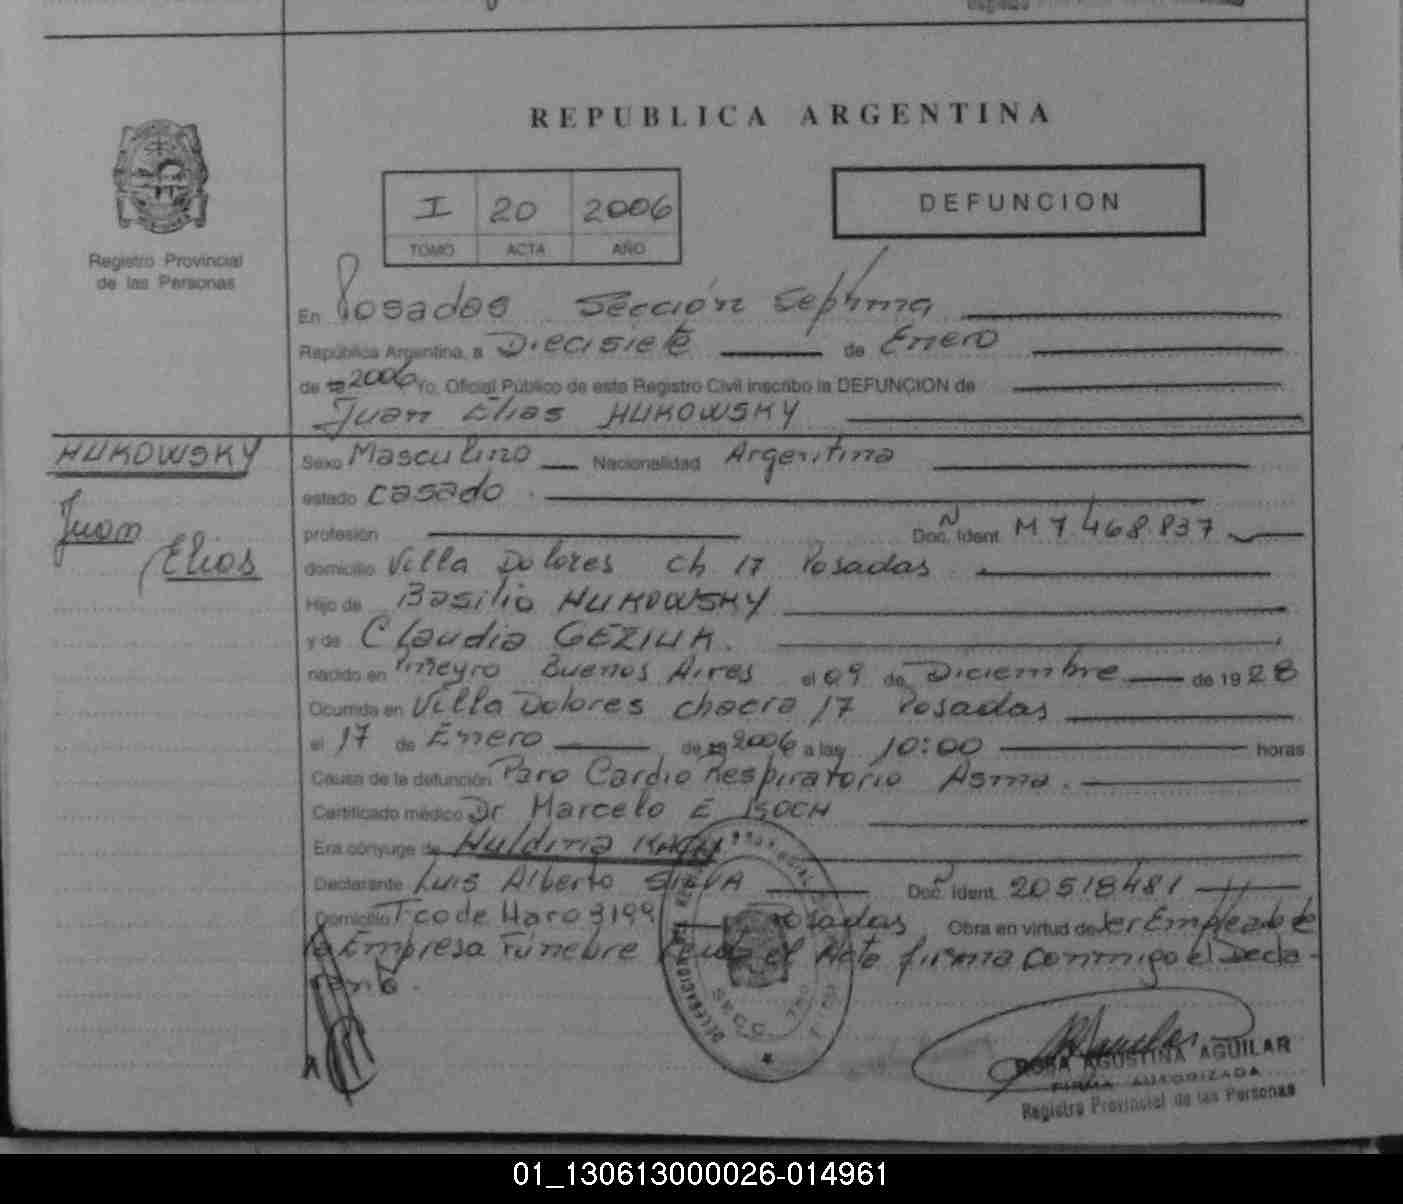 REPUBLICA ARGENTINA
I 20 2006
TOMO ACTA AÑO
DEFUNCION
Registro Provincial
de las Personas
En Posadas Sección Septima
República Argentina, a Diecisiete de Enero
de 19 2006 Yo, Oficial Público de este Registro Civil inscribo la DEFUNCION de
Juan Elias HUKOWSKY
HUKOWSKY
Juan
Elias
Sexo Masculino Nacionalidad Argentina
estado casado
profesión Doc. Ident. M 7.468.837
domicilio Villa Dolores ch 17 Posadas
Hijo de Basilio HUKOWSKY
y de Claudia GEZIUK.
nacido en Piñeyro Buenos Aires el 09 de Diciembre de 1928
Ocurrida en Villa Dolores chacra 17 Posadas
el 17 de Enero de 19 2006 a las 10:00 horas
Causa de la defunción Paro Cardio Respiratorio Asma.
Certificado médico Dr Marcelo E
Era cónyuge de Huldina
Declarante Luis Alberto SILVA Doc. Ident. 20518481
Domicilio Tco de Haro 3199 Posadas Obra en virtud de ser Empleado de
la Empresa Funebre Leida el Acta firma conmigo el Decla-
rante.
SECC. 7
ROSA AGUSTINA AGUILAR
FIRMA AUTORIZADA
Registro Provincial de las Personas
01_130613000026-014961